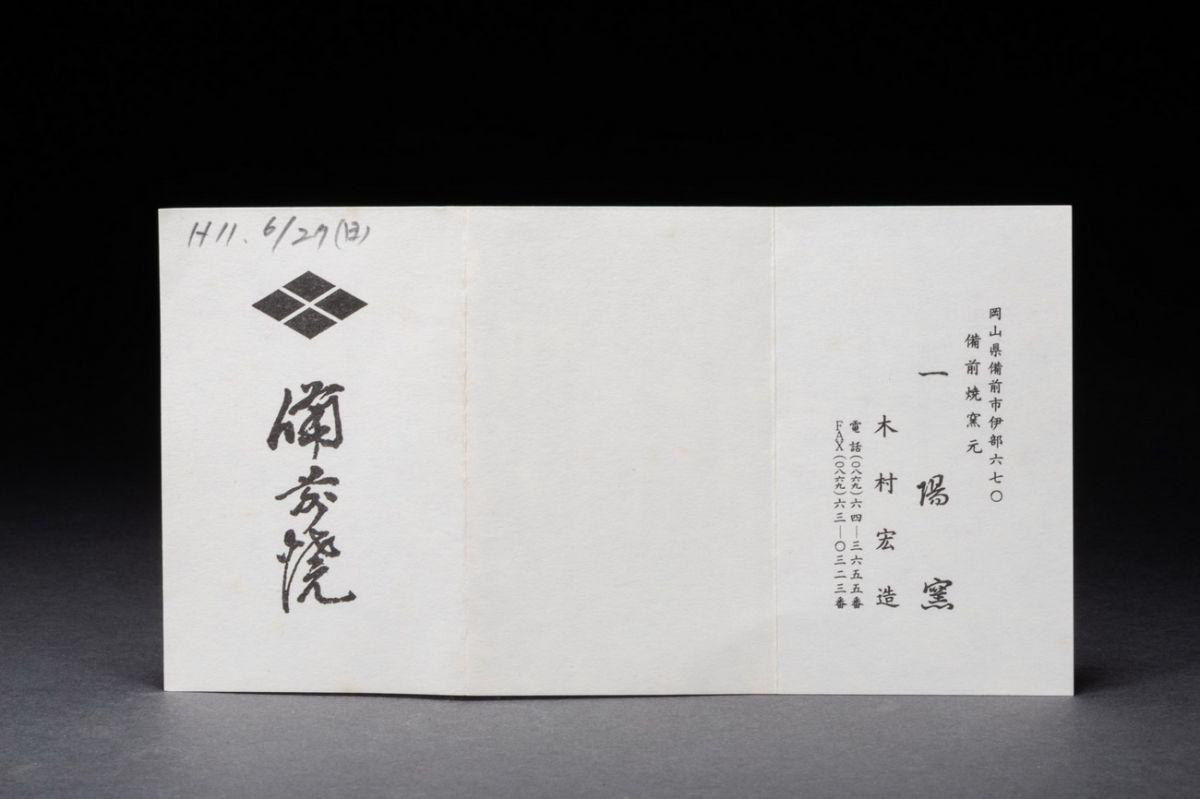 H11. 6/27(日)
備前焼
岡山県備前市伊部六七〇
備前焼窯元
一陽窯
木村宏造
電話(〇八六九)六四―三六五五番
FAX(〇八六九)六三―〇三二三番